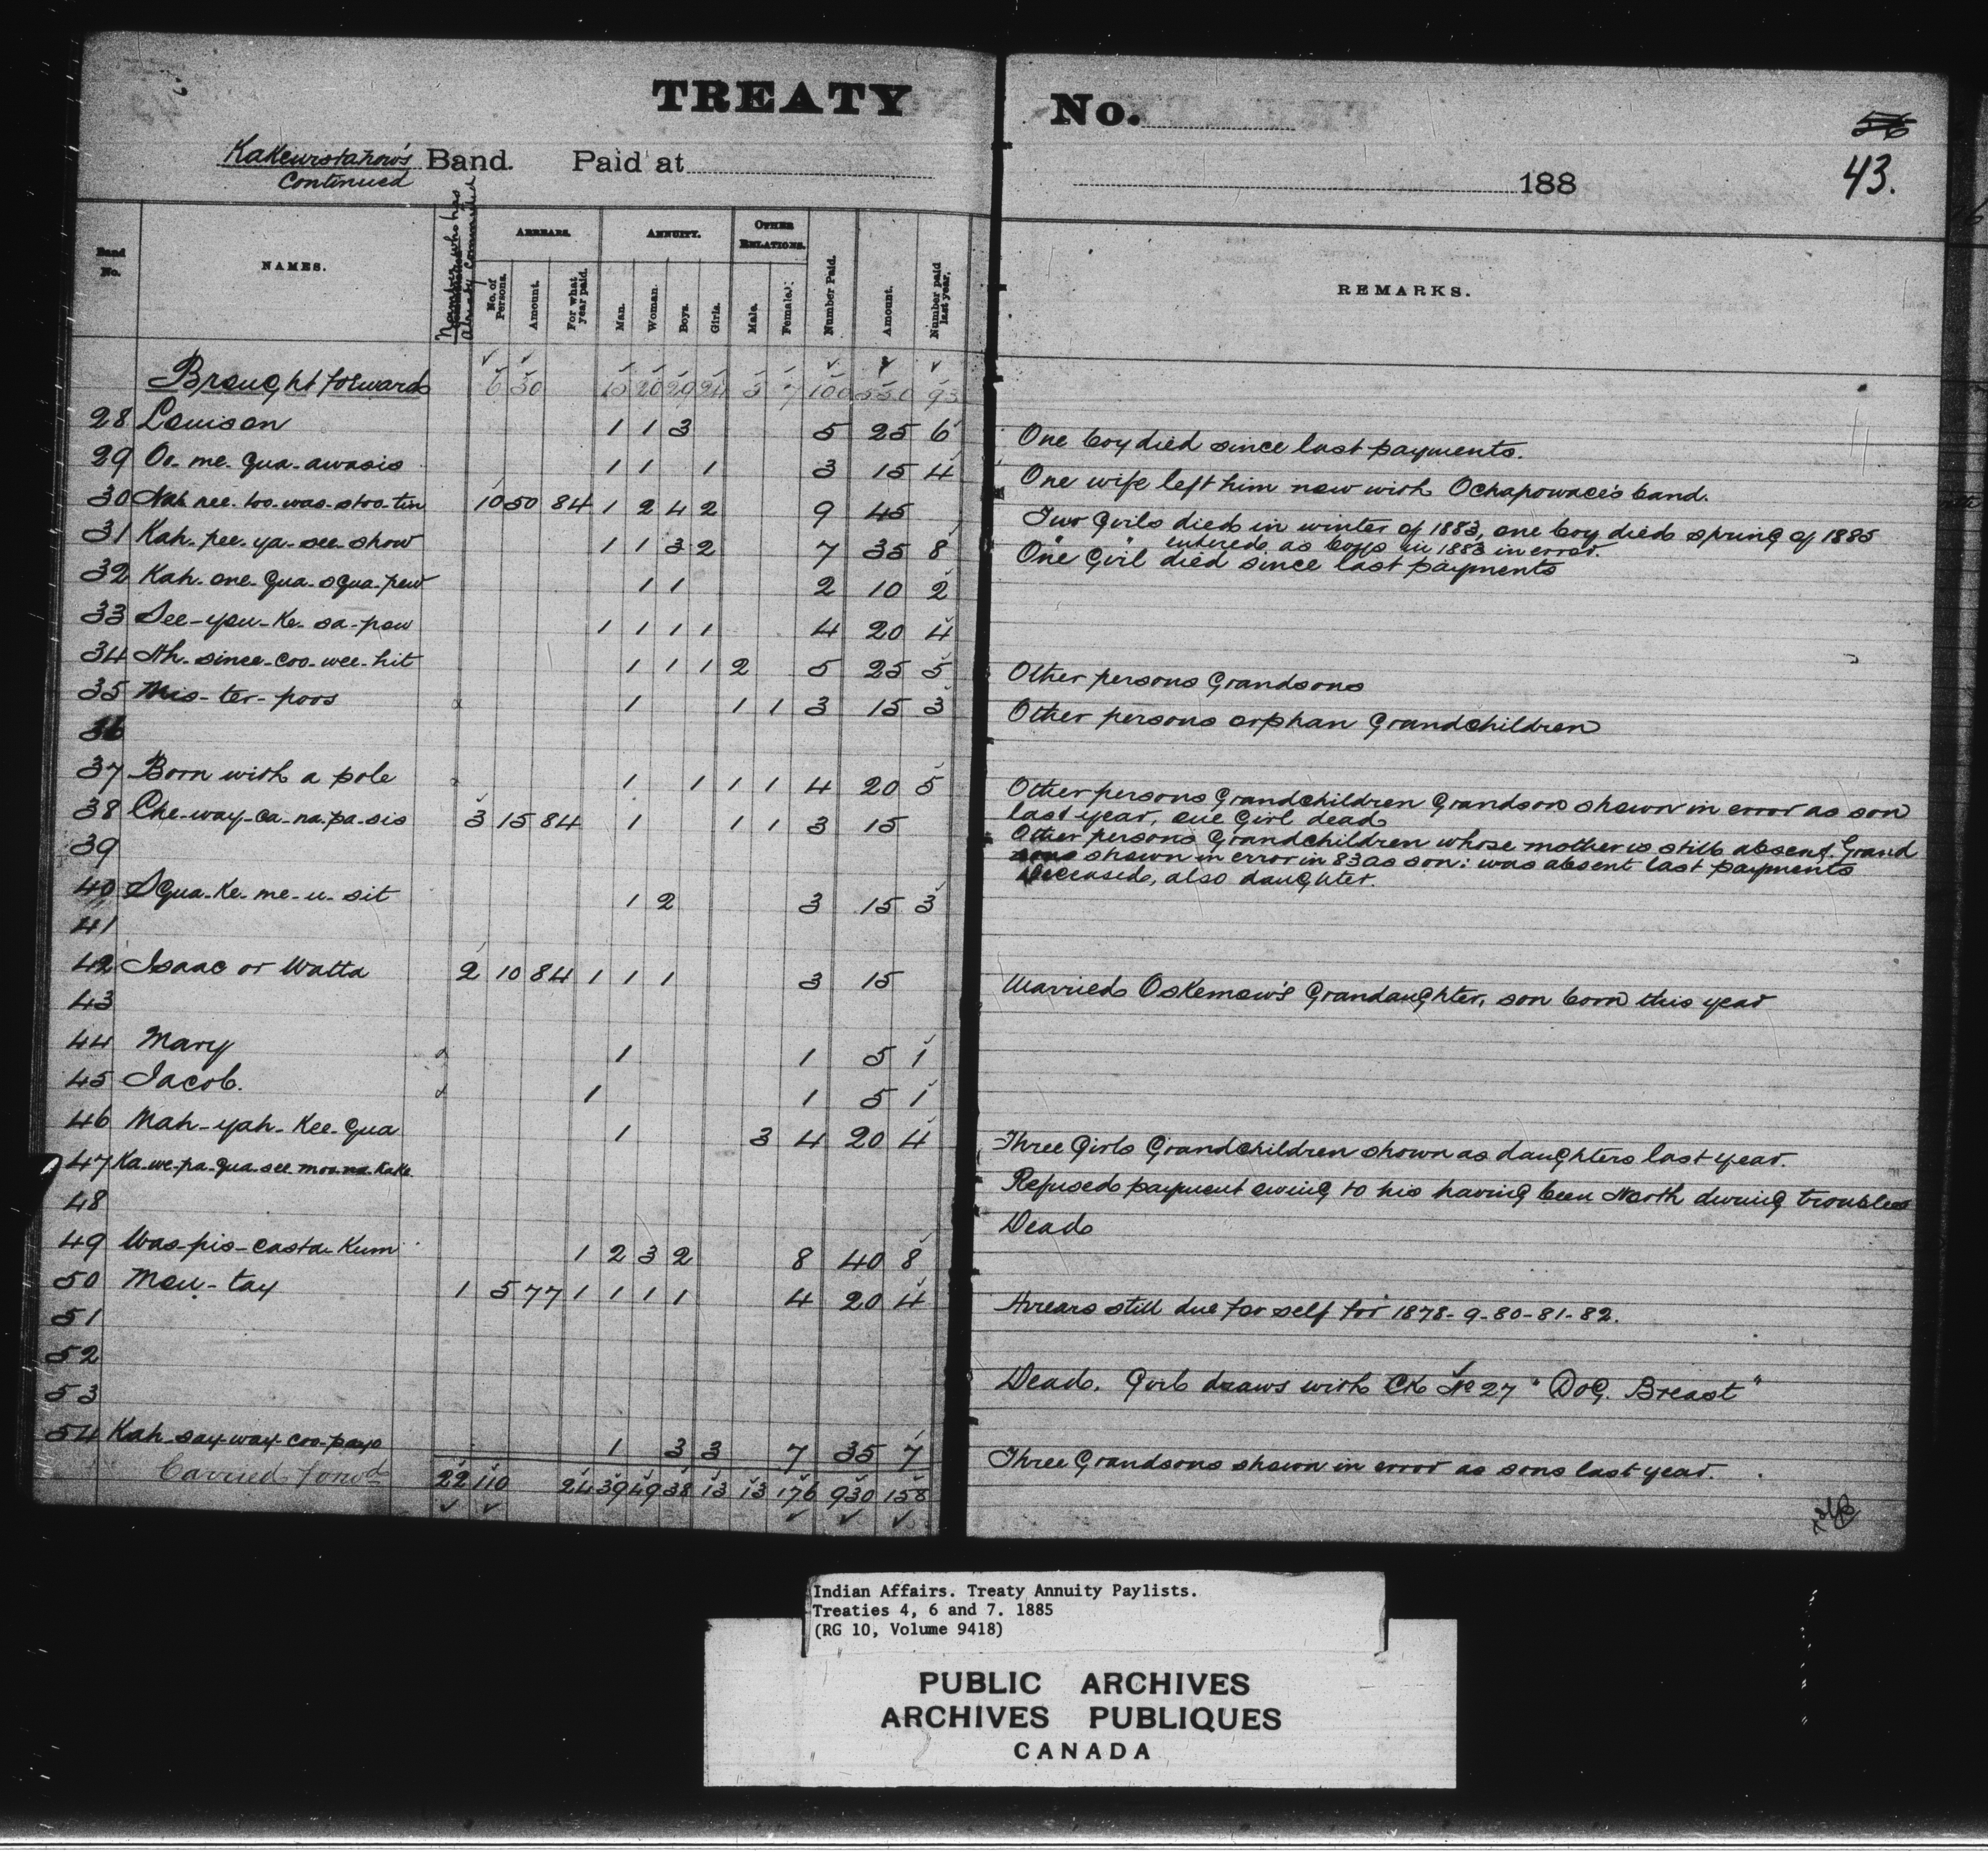 TREATY No.
56
43.
Kakewistahow's Band. Paid at 188
Continued
Band No. NAMES. Number who has already commuted ARREARS. No. of Persons. Amount. For what year paid. ANNUITY. Man. Woman. Boys. Girls. OTHER RELATIONS. Male. Female. Number Paid. Amount. Number paid last year. REMARKS.
Brought forward 6 30 15 20 29 24 5 7 100 550 93
28 Louison 1 1 3 5 25 6 One boy died since last payments.
29 Oo-me-qua-awasis 1 1 1 3 15 4 One wife left him now with Ochapowace's band.
30 Nah-nee-too-was-stoo-tin 10 50 84 1 2 4 2 9 45 Two Girls died in winter of 1883, one boy died spring of 1885
" " entered as boys in 1883 in error.
31 Kah-pee-ya-see-show 1 1 3 2 7 35 8 One Girl died since last payments
32 Kah-one-qua-squa-pew 1 1 2 10 2
33 See-you-Ke-sa-pew 1 1 1 1 4 20 4
34 Ah-since-coo-wee-hit 1 1 1 2 5 25 5 Other persons Grandsons
35 Mis-ter-poos 1 1 1 3 15 3 Other persons orphan Grandchildren
36
37 Born with a pole 1 1 1 1 4 20 5 Other persons Grandchildren Grandson shown in error as son
last year, one Girl dead
38 Che-way-ca-na-pa-sis 3 15 84 1 1 1 3 15 Other persons Grandchildren whose mother is still absent. Grand
39 sons shown in error in 83 as son: was absent last payments
deceased, also daughter.
40 Squa-Ke-me-u-sit 1 2 3 15 3
41
42 Isaac or Watta 2 10 84 1 1 1 3 15 Married OsKemow's Grandaughter, son born this year
43
44 Mary 1 1 5 1
45 Jacob. 1 1 5 1
46 Mah-yah-Kee-qua 1 3 4 20 4 Three Girls Grandchildren shown as daughters last year.
47 Ka-we-pa-qua-see-moo-na-Kake Refused payment owing to his having been North during troubles
48 Dead
49 Was-pis-casta-Kum 1 2 3 2 8 40 8
50 Mou-tay 1 5 77 1 1 1 1 4 20 4 Arrears still due for self for 1878-9-80-81-82.
51
52 Dead. Girl draws with CK No 27 "Dog Breast"
53
54 Kah-say-way-coo-payo 1 3 3 7 35 7 Three Grandsons shown in error as sons last year.
Carried forwd 22 110 24 39 49 38 13 13 176 930 158
Indian Affairs. Treaty Annuity Paylists.
Treaties 4, 6 and 7. 1885
(RG 10, Volume 9418)
PUBLIC ARCHIVES
ARCHIVES PUBLIQUES
CANADA